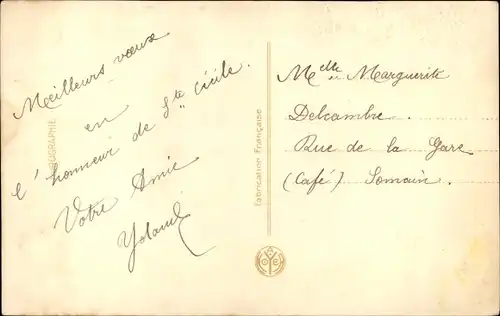 Meilleurs vœux
en
l'honneur de Ste Cécile.
Votre Amie
Yoland
OGRAPHIE
Fabrication Française
Melle Marguerite
Delcambre
Rue de la Gare
(Café) Somain.